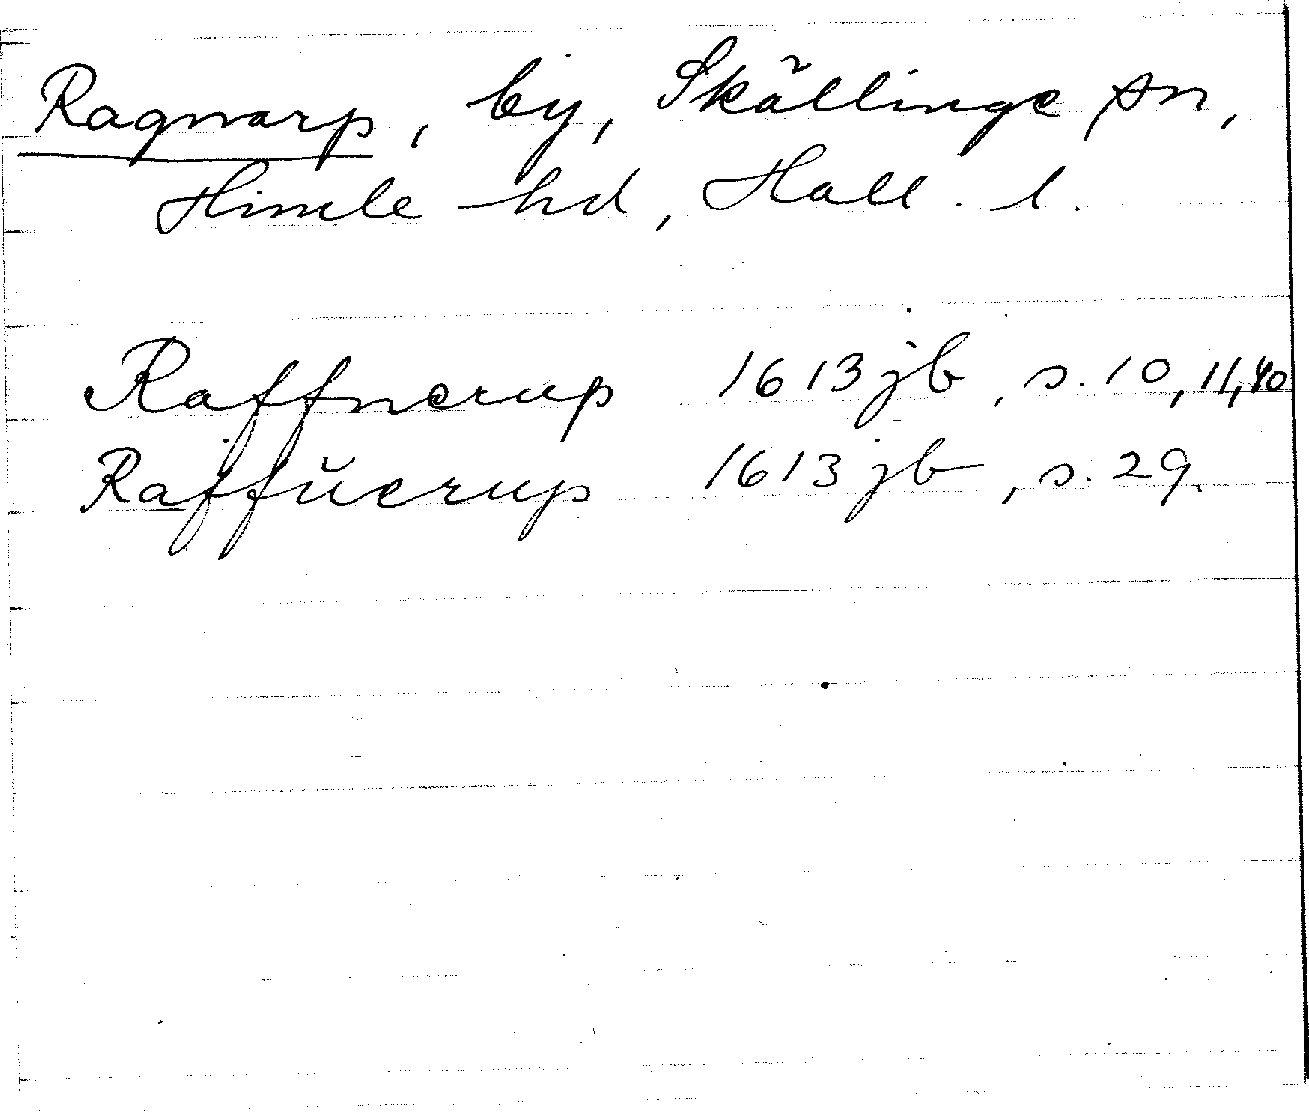 Ragnarp, by, Skällinge sn,
Himle hd, Hall. l.
Raffnerup 1613 jb, s. 10, 11, 40
Raffŭerup 1613 jb, s. 29.